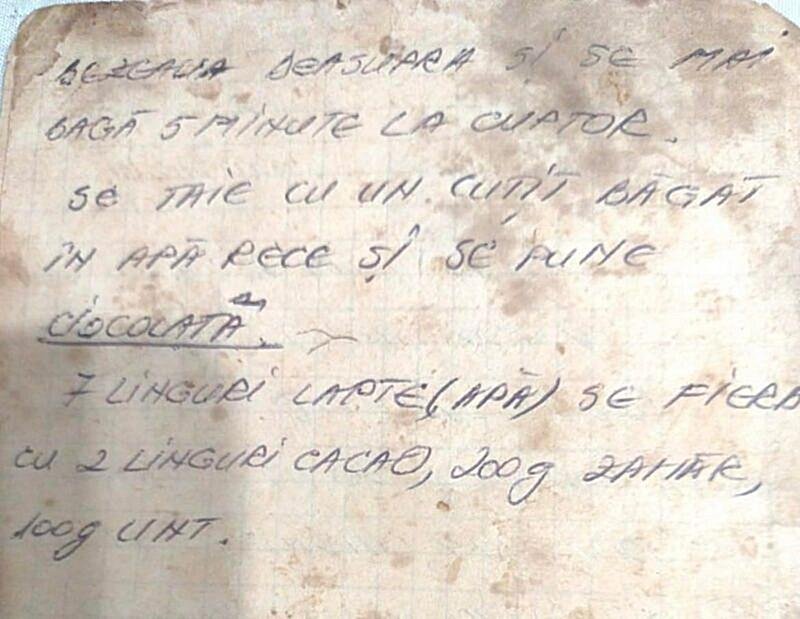 BEZEAUA DEASUPRA ȘI SE MAI
BAGĂ 5 MINUTE LA CUPTOR.
SE TAIE CU UN CUȚIT BĂGAT
ÎN APĂ RECE ȘI SE PUNE
CIOCOLATĂ.
7 LINGURI LAPTE (APĂ) SE FIERB
CU 2 LINGURI CACAO, 200g ZAHĂR,
100g UNT.